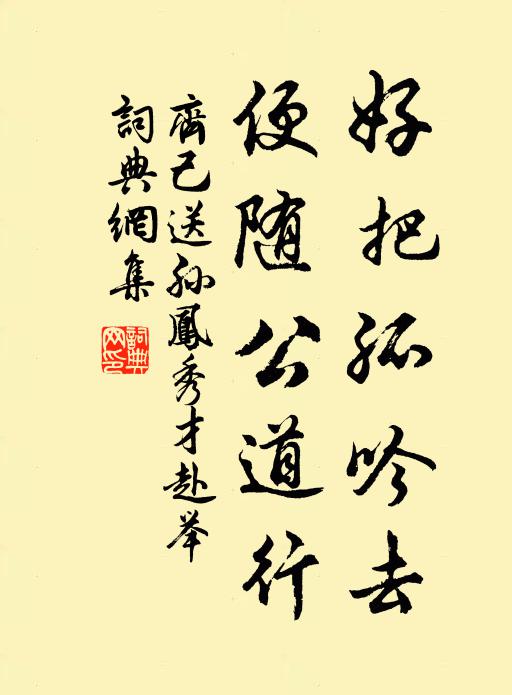 好把孤吟去
便随公道行
齊己送孫鳳秀才赴举
詞典網集
詞典網印